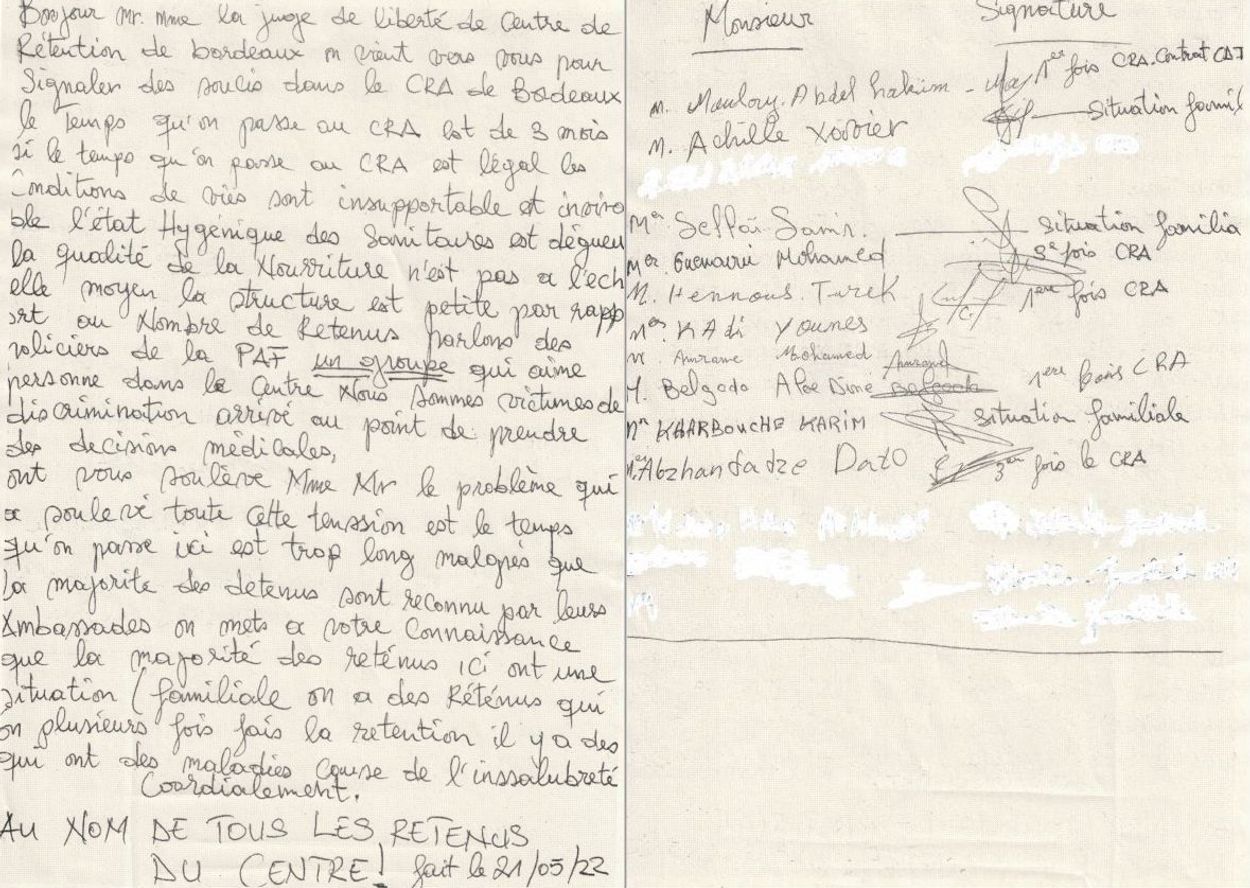 Bonjour Mr. Mme la juge de liberté de Centre de
Rétention de bordeaux on vient vers vous pour
Signaler des soucis dans le CRA de Bordeaux
le Temps qu'on passe au CRA est de 3 mois
si le temps qu'on passe au CRA est légal les
Conditions de viés sont insupportable et inviv
ble l'état Hygénique des Sanitaures est dégueu
la qualité de la Nourriture n'est pas a l'ech
elle moyen la structure est petite par rapp
ort au Nombre de Retenus parlons des
policiers de la PAF un groupe qui aime
personne dans le Centre Nous sommes victimes de
discrimination arrivé au point de prendre
des decisions médicales,
ont vous soulève Mme Mr le problème qui
a soulevé toute cette tenssion est le temps
qu'on passe ici est trop long malgrés que
la majorité des detenus sont reconnu par leurs
Ambassades on mets a votre Connaissance
que la majorité des reténus ici ont une
situation ( familiale on a des Réténus qui
on plusieurs fois fais la retention il y a des
qui ont des maladies Cause de l'inssalubreté
Coordialement.
AU NOM DE TOUS LES RETENUS
DU CENTRE! fait le 21/05/22
Monsieur Signature
M. Abdel hakim - 1er fois CRA.
M. Achille Xavier Situation famil
Mr Samir. Situation familia
Mer. Mohamed 3e fois CRA
M. Hennous. Tarek 1ere fois CRA
Mer KAdi YouNes
M. Amrane Mohamed Amrane
M. Belgada 1ere fois CRA
Mr KHARBOUCHE KARIM Situation familiale
Mer Abzhandadze Dato 3eme fois le CRA